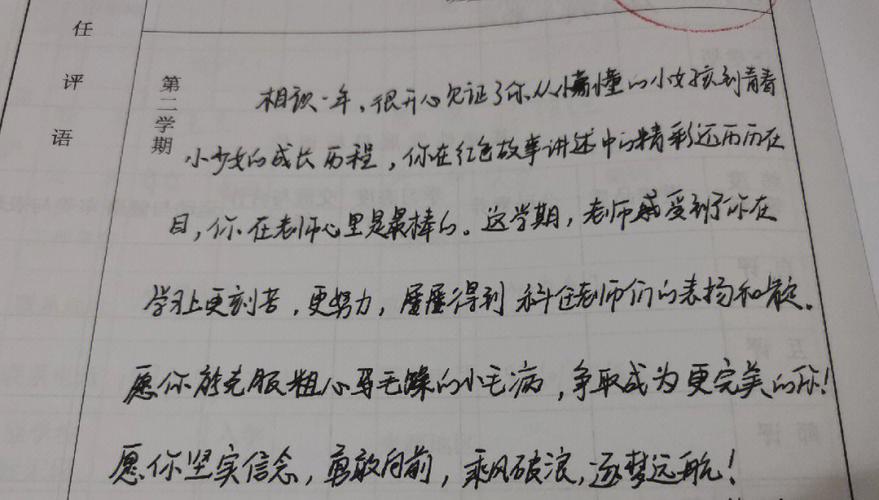 任评语
第二学期
相识一年,很开心见证了你从懵懂的小女孩到青春
小少女的成长历程,你在红色故事讲述中的精彩还历历在
目,你在老师心里是最棒的。这学期,老师感受到了你在
学习上更刻苦,更努力,屡屡得到科任老师们的表扬和肯定。
愿你能克服粗心马毛躁的小毛病,争取成为更完美的你!
愿你坚实信念,勇敢向前,乘风破浪,逐梦远航!